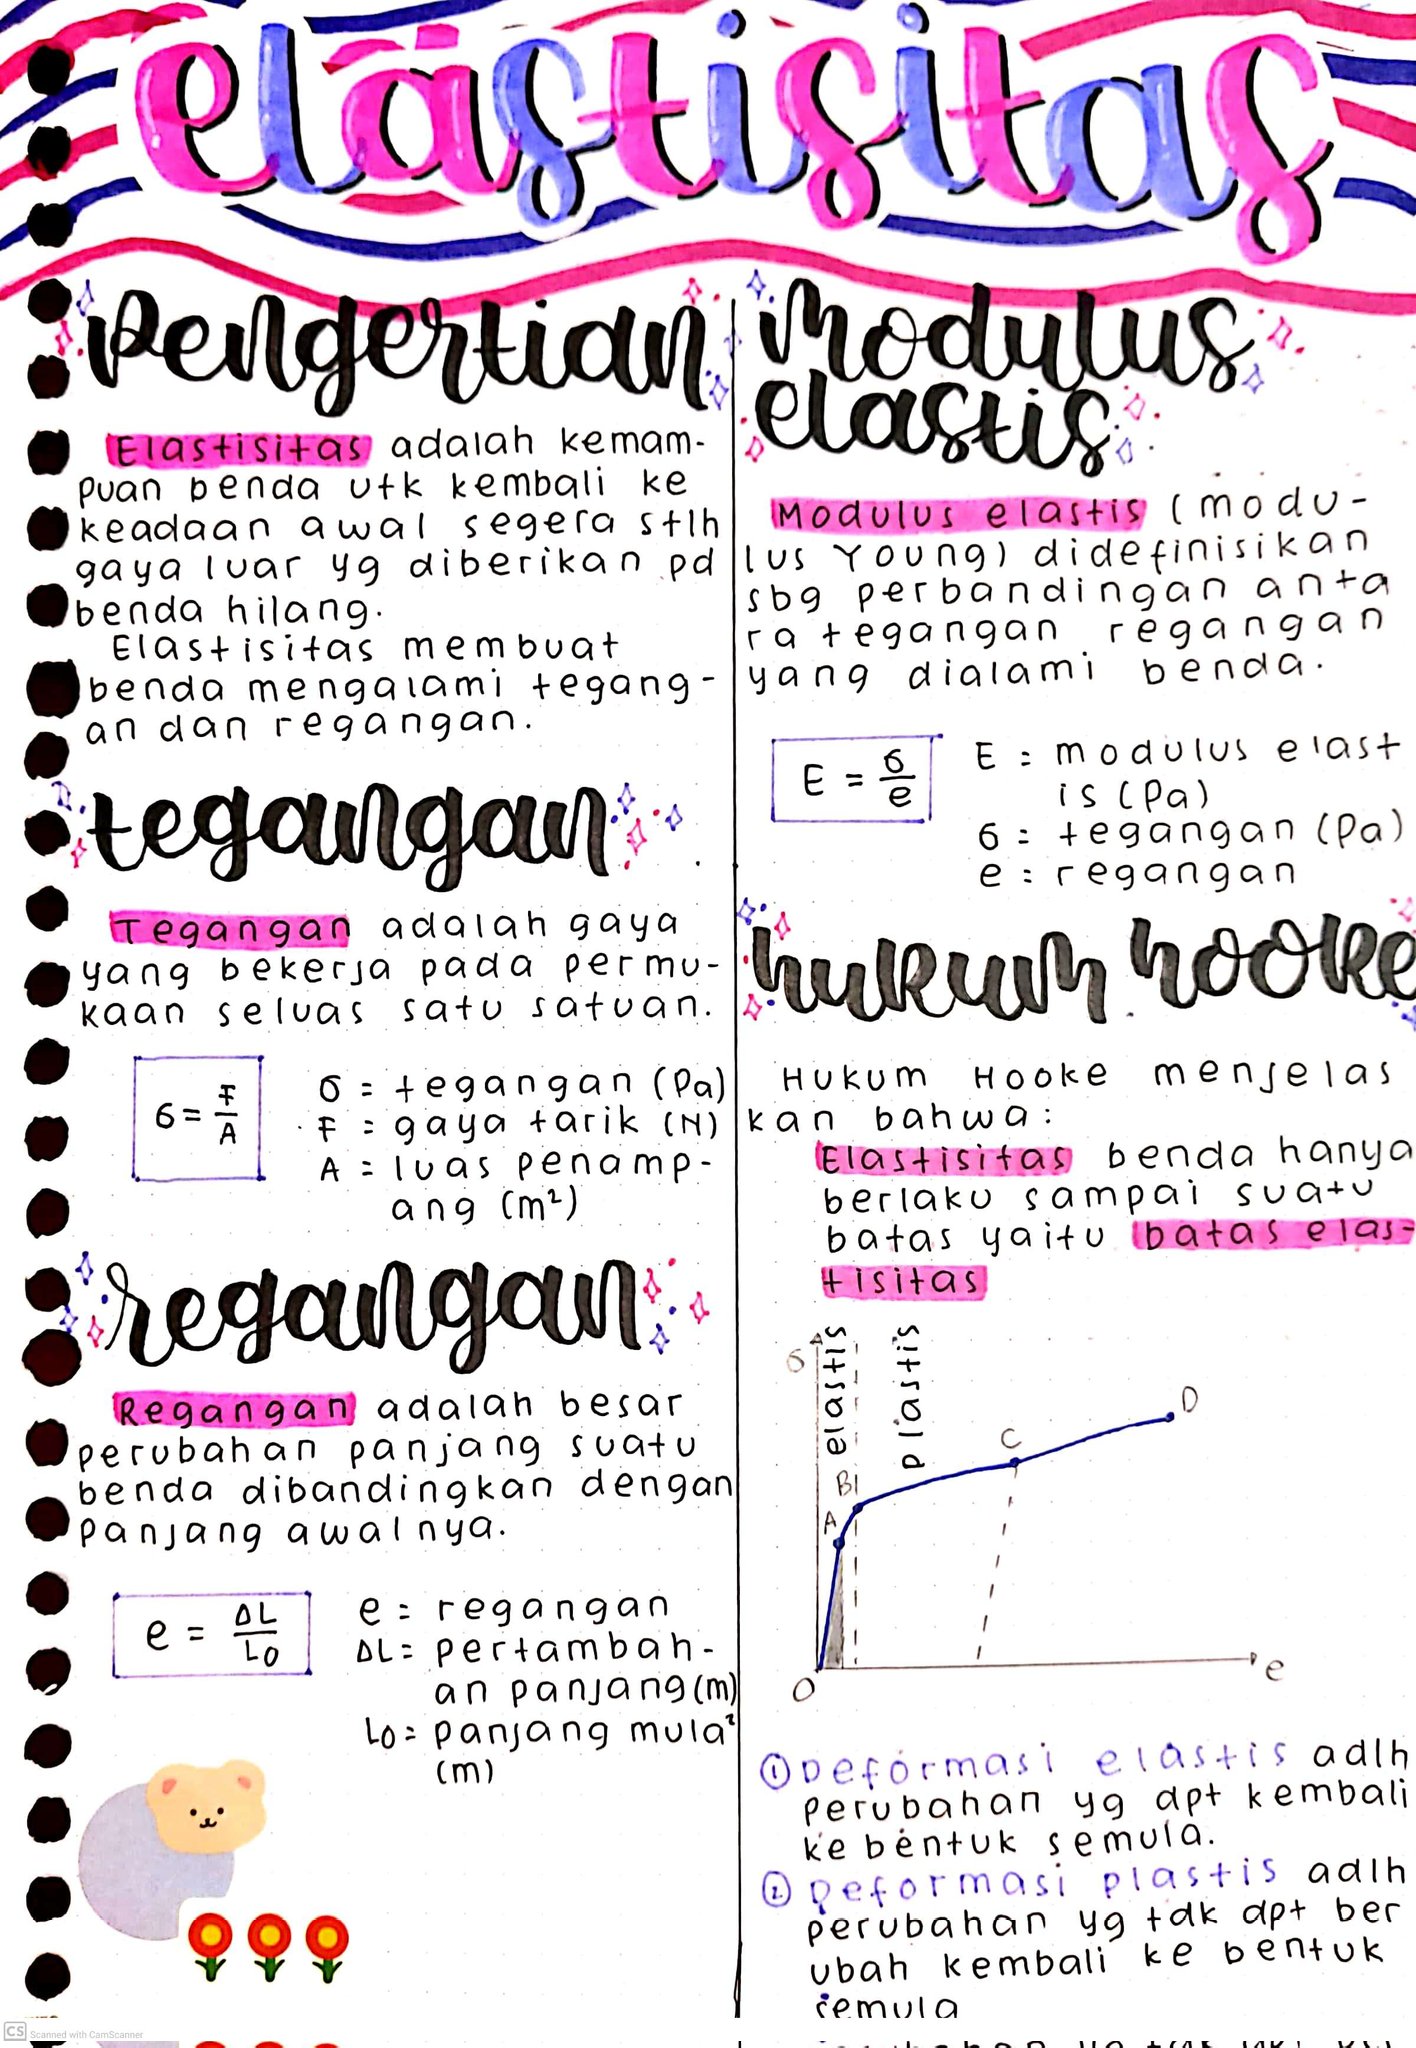 elastisitas
Pengertian
Elastisitas adalah kemam-
puan benda utk kembali ke
keadaan awal segera stlh
gaya luar yg diberikan pd
benda hilang.
Elastisitas membuat
benda mengalami tegang-
an dan regangan.
tegangan
Tegangan adalah gaya
yang bekerja pada permu-
kaan seluas satu satuan.
σ = F/A
σ = tegangan (Pa)
F = gaya tarik (N)
A = luas penamp-
ang (m²)
regangan
Regangan adalah besar
perubahan panjang suatu
benda dibandingkan dengan
panjang awalnya.
e = ΔL/Lo
e = regangan
ΔL = pertambah-
an panjang (m)
Lo = panjang mula²
(m)
Modulus
elastis
Modulus elastis (modu-
lus Young) didefinisikan
sbg perbandingan anta
ra tegangan regangan
yang dialami benda.
E = σ/e
E = modulus elast
is (Pa)
σ = tegangan (Pa)
e = regangan
hukum hooke
Hukum Hooke menjelas
kan bahwa:
Elastisitas benda hanya
berlaku sampai suatu
batas yaitu batas elas-
tisitas
σ
elastis
plastis
D
C
B
A
O
e
① Deformasi elastis adlh
perubahan yg dpt kembali
ke bentuk semula.
② Deformasi plastis adlh
perubahan yg tdk dpt ber
ubah kembali ke bentuk
semula
CS Scanned with CamScanner